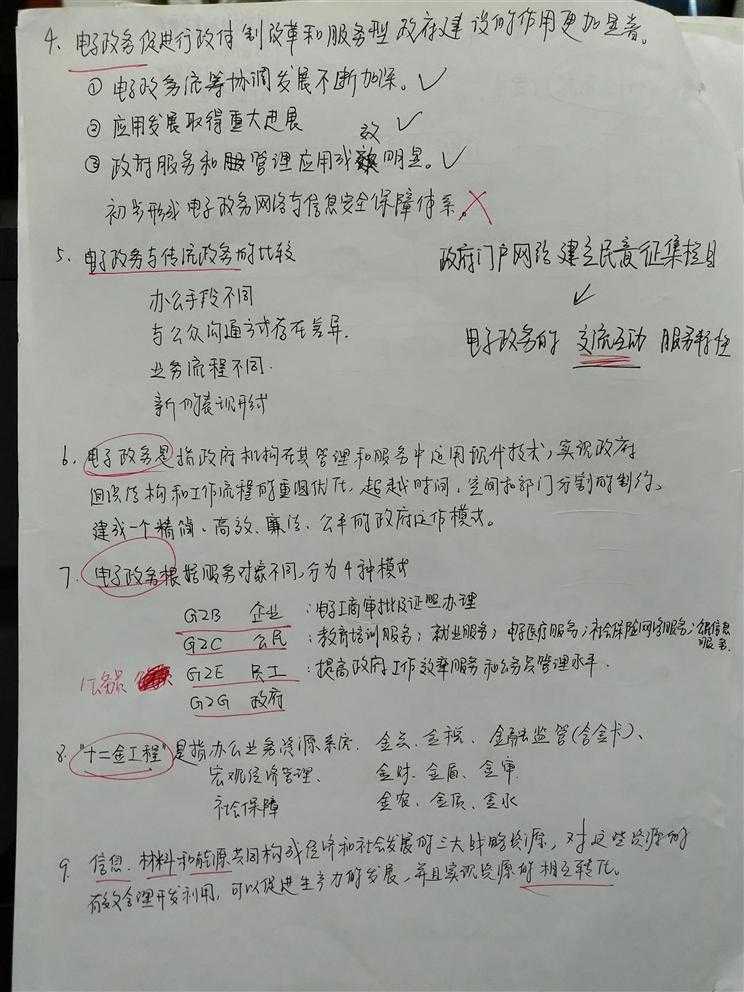 4、电子政务促进行政体制改革和服务型政府建设的作用更加显著。
① 电子政务统筹协调发展不断加深。✓
② 应用发展取得重大进展 ✓
③ 政府服务和管理应用成效明显。✓
初步形成电子政务网络与信息安全保障体系。✗
5、电子政务与传统政务的比较
办公手段不同
与公众沟通方式存在差异.
业务流程不同.
新的表现形式
政府门户网站建立民意征集栏目
↙
电子政务的 交流互动 服务特性
6、电子政务是指政府机构在其管理和服务中运用现代技术，实现政府
组织结构和工作流程的重组优化，超越时间、空间和部门分割的制约，
建成一个精简、高效、廉洁、公平的政府运作模式。
7、电子政务根据服务对象不同，分为4种模式
G2B 企业 ：电子工商审批及证照办理
G2C 公民 ：教育培训服务；就业服务；电子医疗服务；社会保险网络服务；公民信息服务.
公务员 G2E 员工 ：提高政府工作效率服务和公务员管理水平.
G2G 政府
8、"十二金工程"是指办公业务资源系统. 金关、金税、金融监管(含金卡)、
宏观经济管理、 金财、金盾、金审、
社会保障 金农、金质、金水
9、信息、材料和能源共同构成经济和社会发展的三大战略资源，对这些资源的
有效合理开发利用，可以促进生产力的发展，并且实现资源的相互转化。